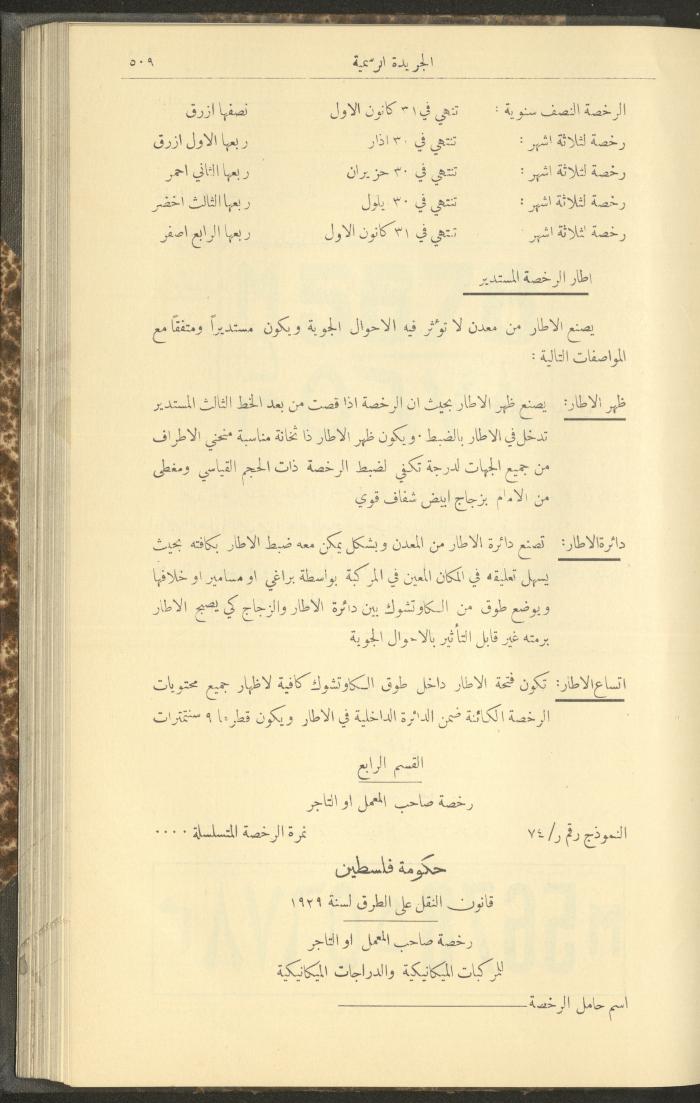 الجريدة الرسمية ٥٠٩
الرخصة النصف سنوية : تنتهي في ٣١ كانون الاول نصفها ازرق
رخصة لثلاثة اشهر : تنتهي في ٣٠ اذار ربعها الاول ازرق
رخصة لثلاثة اشهر : تنتهي في ٣٠ حزيران ربعها الثاني احمر
رخصة لثلاثة اشهر : تنتهي في ٣٠ يلول ربعها الثالث اخضر
رخصة لثلاثة اشهر تنتهي في ٣١ كانون الاول ربعها الرابع اصفر
اطار الرخصة المستدير
يصنع الاطار من معدن لا تؤثر فيه الاحوال الجوية ويكون مستديراً ومتفقاً مع
المواصفات التالية :
ظهر الاطار: يصنع ظهر الاطار بحيث ان الرخصة اذا قصت من بعد الخط الثالث المستدير
تدخل في الاطار بالضبط ٠ ويكون ظهر الاطار ذا ثخانة مناسبة منحني الاطراف
من جميع الجهات لدرجة تكفي لضبط الرخصة ذات الحجم القياسي ومغطى
من الامام بزجاج ابيض شفاف قوي
دائرة الاطار: تصنع دائرة الاطار من المعدن وبشكل يمكن معه ضبط الاطار بكافته بحيث
يسهل تعليقه في المكان المعين في المركبة بواسطة براغي او مسامير او خلافها
ويوضع طوق من الكاوتشوك بين دائرة الاطار والزجاج كي يصبح الاطار
برمته غير قابل التأثير بالاحوال الجوية
اتساع الاطار: تكون فتحة الاطار داخل طوق الكاوتشوك كافية لاظهار جميع محتويات
الرخصة الكائنة ضمن الدائرة الداخلية في الاطار ويكون قطرها ٩ سنتمترات
القسم الرابع
رخصة صاحب المعمل او التاجر
النموذج رقم ر/٧٤ نمرة الرخصة المتسلسلة ٠٠٠٠
حكومة فلسطين
قانون النقل على الطرق لسنة ١٩٢٩
رخصة صاحب المعمل او التاجر
للمركبات الميكانيكية والدراجات الميكانيكية
اسم حامل الرخصة